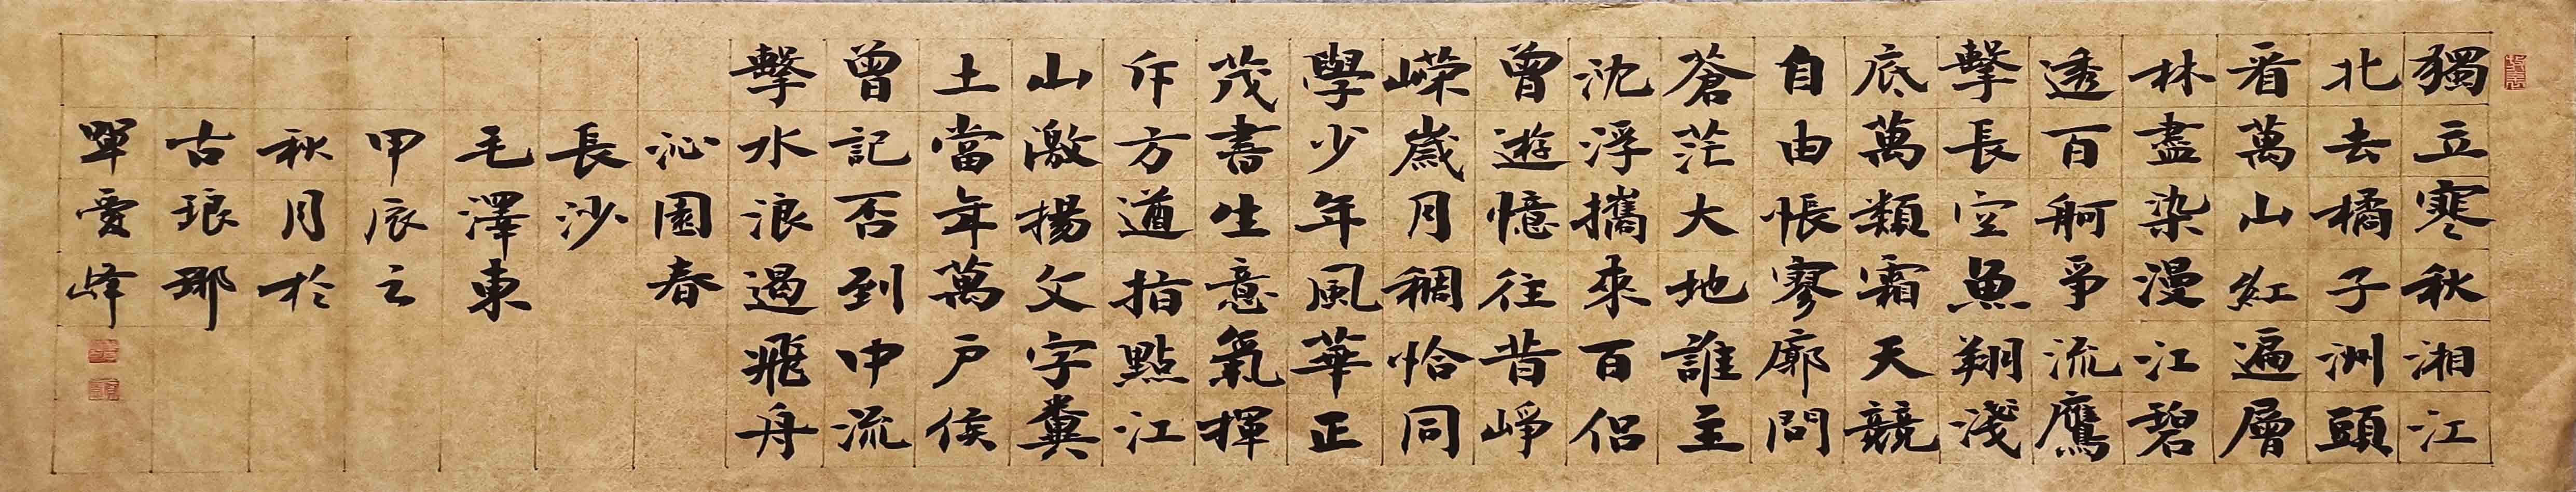 獨立寒秋湘江
北去橘子洲頭
看萬山紅遍層
林盡染漫江碧
透百舸爭流鷹
擊長空魚翔淺
底萬類霜天競
自由悵寥廓問
蒼茫大地誰主
沈浮攜來百侶
曾遊憶往昔崢
嶸歲月稠恰同
學少年風華正
茂書生意氣揮
斥方遒指點江
山激揚文字糞
土當年萬戶侯
曾記否到中流
擊水浪遏飛舟
沁園春
長沙
毛澤東
甲辰之
秋月於
古琅琊
單愛峰